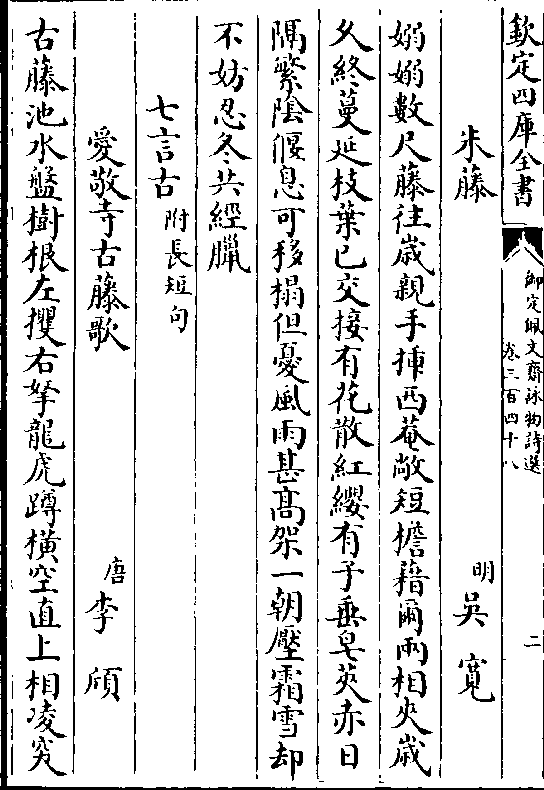 欽定四庫全書
御定佩文齋詠物詩選
卷三百四十八
二
朱藤
明
吳寬
嫋嫋數尺藤往歲親手揷西菴敞短檐藉爾兩相夾歲
久終蔓延枝葉已交接有花散紅纓有子垂皂莢赤日
隔繁陰偃息可移榻但憂風雨甚高架一朝壓霜雪却
不妨忍冬共經臘
七言古
附長短句
愛敬寺古藤歌
唐
李頎
古藤池水盤樹根左攫右拏龍虎蹲橫空直上相凌突